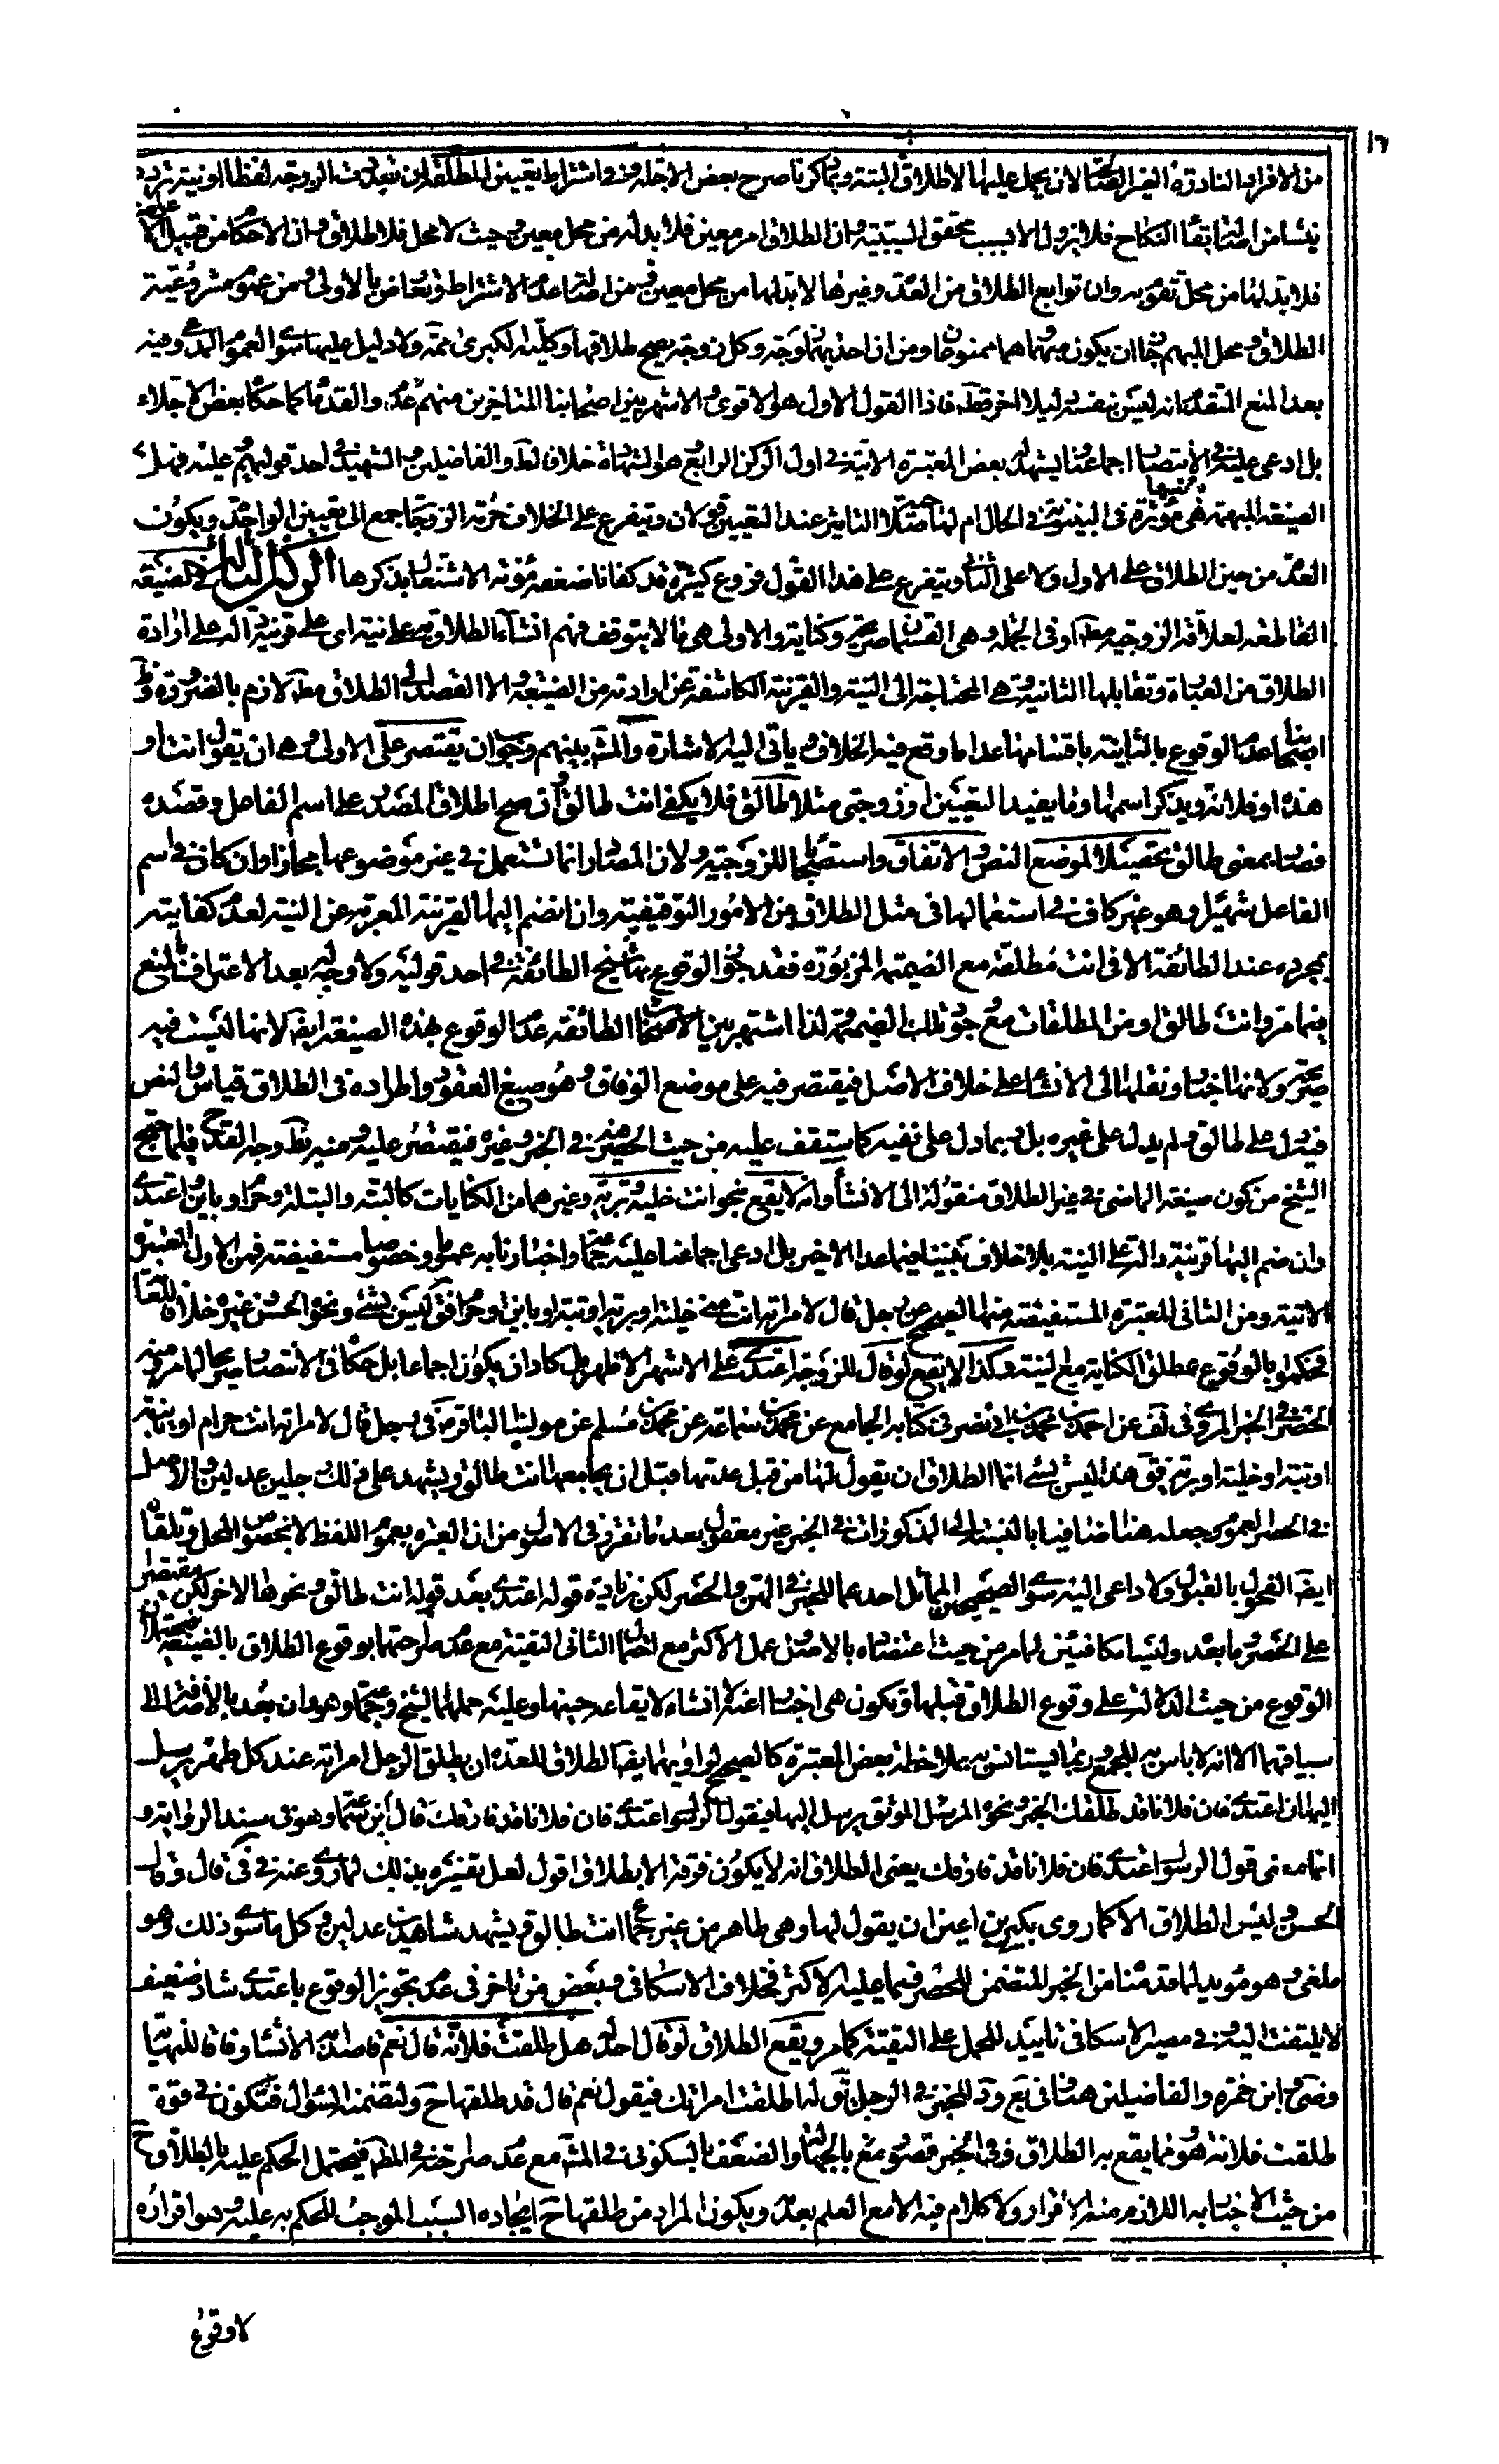 من الافراد النادرة الغير الصالحة لان يحمل عليها الاطلاق البتة وبما ذكرنا صرح بعض الاجلة وفي اشتراط تعيين المطلقة ان تعددت الزوجة لفظا او نية تردد
ينشأ من اصالة بقاء النكاح فلا يزول الا بسبب محقق السببية وان الطلاق امر معين فلا بد له من محل معين وحيث لا محل فلا طلاق وان الاحكام من قبيل الاعراض
فلا بد لها من محل تقوم به وان توابع الطلاق من العدة وغيرها لا بد لها من محل معين ومن اصالة عدم الاشتراط وتعارض بالاولى ومن عموم مشروعية
الطلاق ومحل المبهم جاز ان يكون مبهما وهما ممنوعان ومن ان احديهما زوجة وكل زوجة يصح طلاقها وكلية الكبرى ممنوعة ولا دليل عليها سوى العموم المدعى وفيه
بعد المنع المتقدم انه ليس بنفسه دليلا اخر قطعا فاذا القول الاول هو الاقوى والاشهر بين اصحابنا المتأخرين منهم وعدة من القدماء كما حكاه بعض الاجلاء
بل ادعى عليه في الانتصار اجماعنا ويشهد له بعض المعتبرة الاتية في اول الركن الرابع وهو الشهادة خلافا للمبسوط والفاضلين والشهيد في احد قوليهم عليه فهل
الصيغة المبهمة هي مؤثرة في البينونة في الحال ام لها صلاحية التأثير عند التعيين قولان ويتفرع على الخلاف حرمة الزوجات اجمع الى تعيين الواحدة ويكون
العدة من حين الطلاق على الاول ولا على الثاني ويتفرع على هذا القول فروع كثيرة قد كفانا ضعفه مؤنة الاشتغال بذكرها الركن الثالث في الصيغة
القاطعة لعلاقة الزوجية مطلقا او في الجملة وهي القسمان صريح وكناية والاولى هي ما لا يتوقف فهم انشاء الطلاق منه على نية اى على قرينة دالة على ارادة
الطلاق من العبارة وتقابلها الثانية وهي المحتاجة الى النية والقرينة الكاشفة عن ارادته من الصيغة والا القصد الى الطلاق مطلقا لازم بالضرورة وظاهر
اصحابنا عدم الوقوع بالثانية باقسامها عدا ما وقع فيه الخلاف ويأتي اليه الاشارة والمشهور بينهم وجوب ان تقتصر على الاولى وهي ان تقول انت او
هذه او فلانة ويذكر اسمها وما يفيد التعيين او زوجتى مثلا طالق فلا يكفى انت طالق وان صح اطلاق المصدر على اسم الفاعل وقصده
فصار بمعنى طالق تحصيلا لموضع النص والاتفاق واستصحابا للزوجية ولان المصادر انما تستعمل في غير موضوعها مجازا وان كان في اسم
الفاعل شهيرا وهو غير كاف في استعمالها في مثل الطلاق من الامور التوقيفية وان انضم اليها القرينة المعربة عن النية لعدم كفايته
بمجرده عند الطائفة الا في انت مطلقة مع الضميمة المزبورة فقد جوز الوقوع بها شيخ الطائفة في احد قوليه ولا وجه له بعد الاعتراف بالمنع
فيما مر وانت طالق او من المطلقات مع وجود تلك الضميمة ولذا اشتهر بين الاصحاب الطائفة عدم الوقوع بهذه الصيغة ايضا لانها ليست فيه
صريحة ولانها اخبار ونقلها الى الانشاء على خلاف الاصل فيقتصر فيه على موضع الوفاق وهو صيغ العقود واطراده في الطلاق قياس والنص
فيه دل على طالق ولم يدل على غيره بل ربما دل على نفيه كما ستقف عليه من حيث الحصر فيه في الخبر وغيره فيقتصر عليه ومنه يظهر وجه القدح فيما احتج
الشيخ من كون صيغة الماضي في غير الطلاق منقولة الى الانشاء وانه لا يقع بنحو انت خلية وبرية وغيرهما من الكنايات كالبتة والبتلة وحرام او باين واعتدى
وان ضم اليها قرينة دالة على النية بلا خلاف بيننا فيما عدا الاخير بل ادعى اجماعنا عليه جماعة واخبارنا به عموما وخصوصا مستفيضة فمن الاول المعتبرة
الاتية ومن الثاني المعتبرة المستفيضة منها الصحيح عن رجل قال لامراته انت منى خلية او برية او بتة او باين او حرام فقال ليس بشئ ونحوه الحسن وغيره خلافا للعامة
فحكموا بالوقوع بمطلق الكناية مع النية وكذا لا يقع لو قال للزوجة اعتدى على الاشهر الاظهر بل كاد ان يكون اجماعا بل حكاه في الانتصار صريحا لما مر ومنه
الحصر في الخبر المروي في لف عن احمد بن محمد بن ابى نصر في كتابه الجامع عن محمد بن سماعة عن محمد بن مسلم عن مولينا الباقر ع في رجل قال لامراته انت حرام او باينة
او بتة او خلية او برية فقال هذا ليس بشئ انما الطلاق ان يقول لها من قبل عدتها قبل ان يجامعها انت طالق ويشهد على ذلك رجلين عدلين والاصل
في الحصر العموم وجعله هنا اضافيا بالنسبة الى المذكورات في الخبر غير معقول بعد ما تقرر في الاصول من ان العبرة بعموم اللفظ لا بخصوص المحل وتلقاه
ايضا الفحول بالقبول ولا داعى اليه سوى الصحيحين المماثل احدهما للخبر في المتن والحصر لكن بزيادة قوله اعتدى بعد قوله انت طالق ونحوها الاخر لكن مقتصرا
على الحصر وما بعده وليسا مكافئين لما مر من حيث اعتضاده بالاصل وعمل الاكثر مع احتمال الثاني التقية مع عدم صراحتها بوقوع الطلاق بالصيغة محتملا
الوقوع من حيث الدلالة على وقوع الطلاق قبلها ويكون هي اخبارا عنه لا انشاء لايقاعه حينها وعليه حملها الشيخ وجماعة وهو وان بعد بالاضافة الى
سياقهما الا انه لا باس به للجمع وربما يستانس به بملاحظة بعض المعتبرة كالصحيح لراويهما ايضا الطلاق للعدة ان يطلق الرجل امراته عند كل طهر يرسل
اليها ان اعتدى فان فلانا قد طلقك الخبر ونحوه المرسل الموثق يرسل اليها فيقول الرسول اعتدى فان فلانا قد فارقك قال ابن سماعة وهو في سند الرواية
انما معنى قول الرسول اعتدى فان فلانا قد فارقك يعنى الطلاق انه لا يكون فرقة الا بطلاق اقول لعل تفسيره بذلك لما روى عنه في في قال وقال
الحسن وليس الطلاق الا كما روى بكير بن اعين ان يقول لها وهي طاهر من غير جماع انت طالق ويشهد شاهدين عدلين وكل ما سوى ذلك فهو
ملغى وهو مؤيد لما قدمنا من الخبر المتضمن للحصر فيما عليه الاكثر فخلاف الاسكافى وبعض من تاخر في عدم تجويز الوقوع باعتدى شاذ ضعيف
لا يلتفت اليه وفي مصير الاسكافى تاييد للحمل على التقية كما مر ويقع الطلاق لو قال احد له هل طلقت فلانة قال نعم قاصدا به الانشاء وفاقا للنهاية
وضى وابن حمزة والفاضلين هنا وفي يع ود للخبر في الرجل يق له اطلقت امراتك فيقول نعم قال قد طلقها ح ولتضمنه السؤال فتكون في قوة
طلقت فلانة وهو مما يقع به الطلاق وفي الخبر قصور مع بالجهالة والضعف بالسكونى في المشهور مع عدم صراحته في المطلوب فيحتمل الحكم عليه بالطلاق ح
من حيث الاخبار به اللازم منه الاقرار ولا كلام فيه الا مع العلم بعدمه ويكون المراد من طلقها ح ايجاده السبب الموجب للحكم به عليه وهو اقراره
لا وقوع